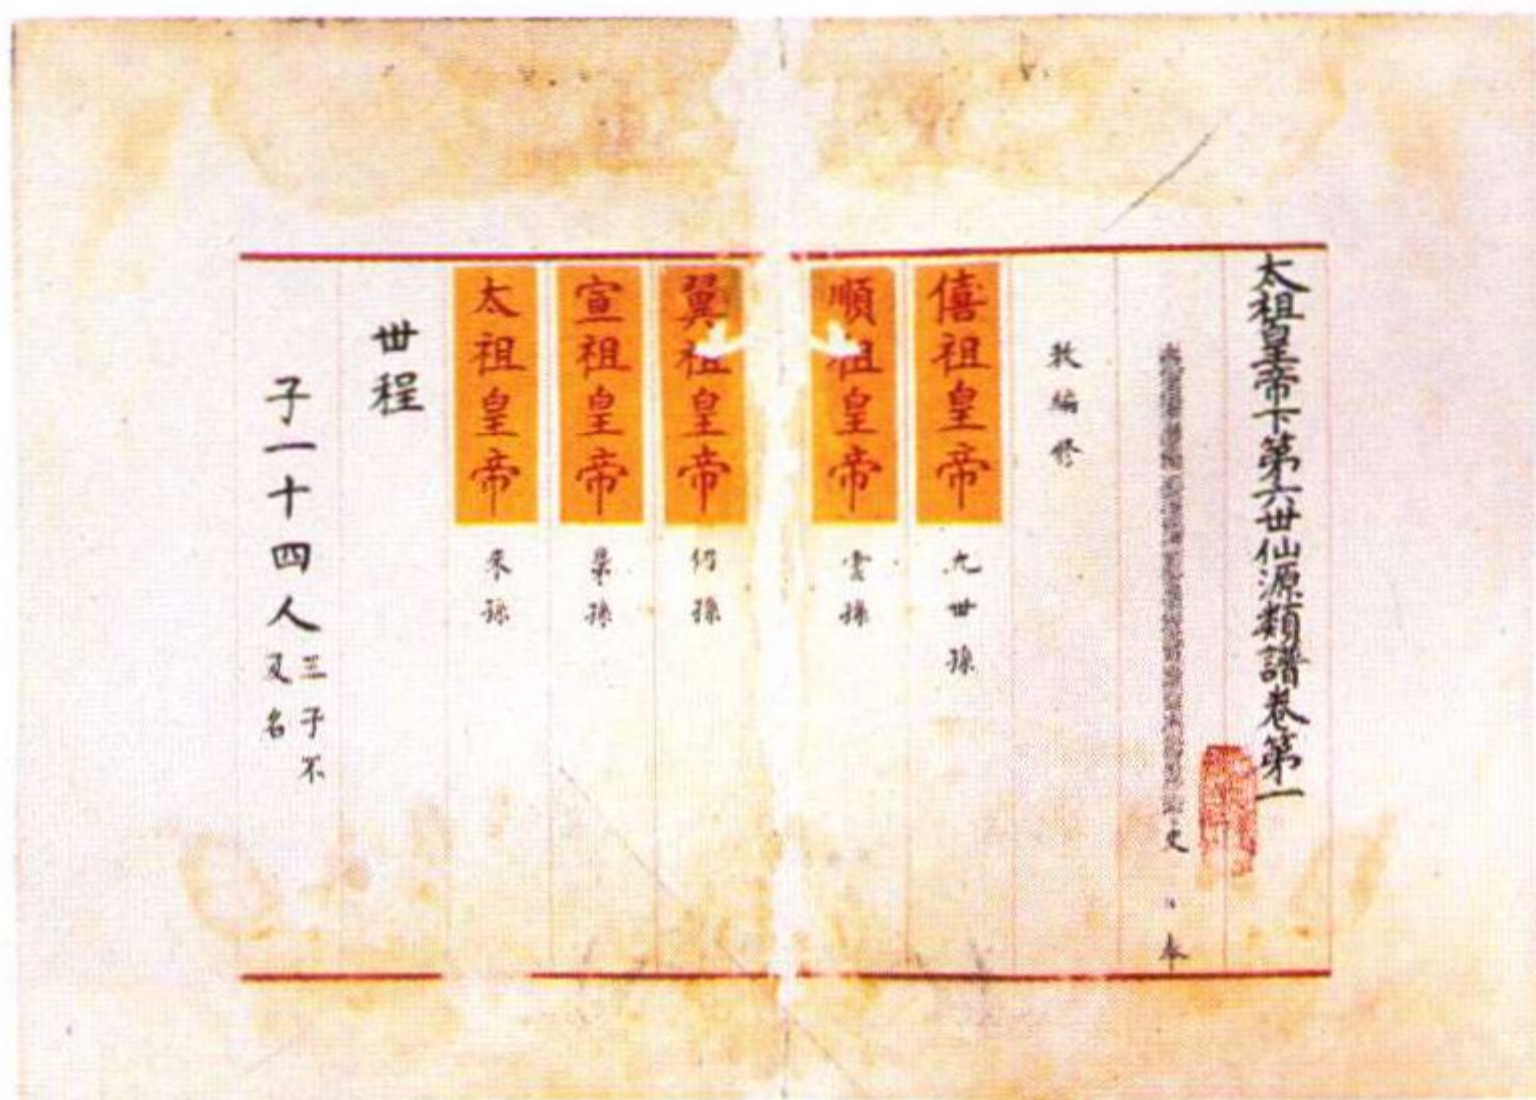 太祖皇帝下第六世仙源類譜卷第一
史 臣 奉
敕編修
僖祖皇帝 九世孫
順祖皇帝 雲孫
翼祖皇帝 仍孫
宣祖皇帝 晜孫
太祖皇帝 來孫
世程
子一十四人 三子不及名